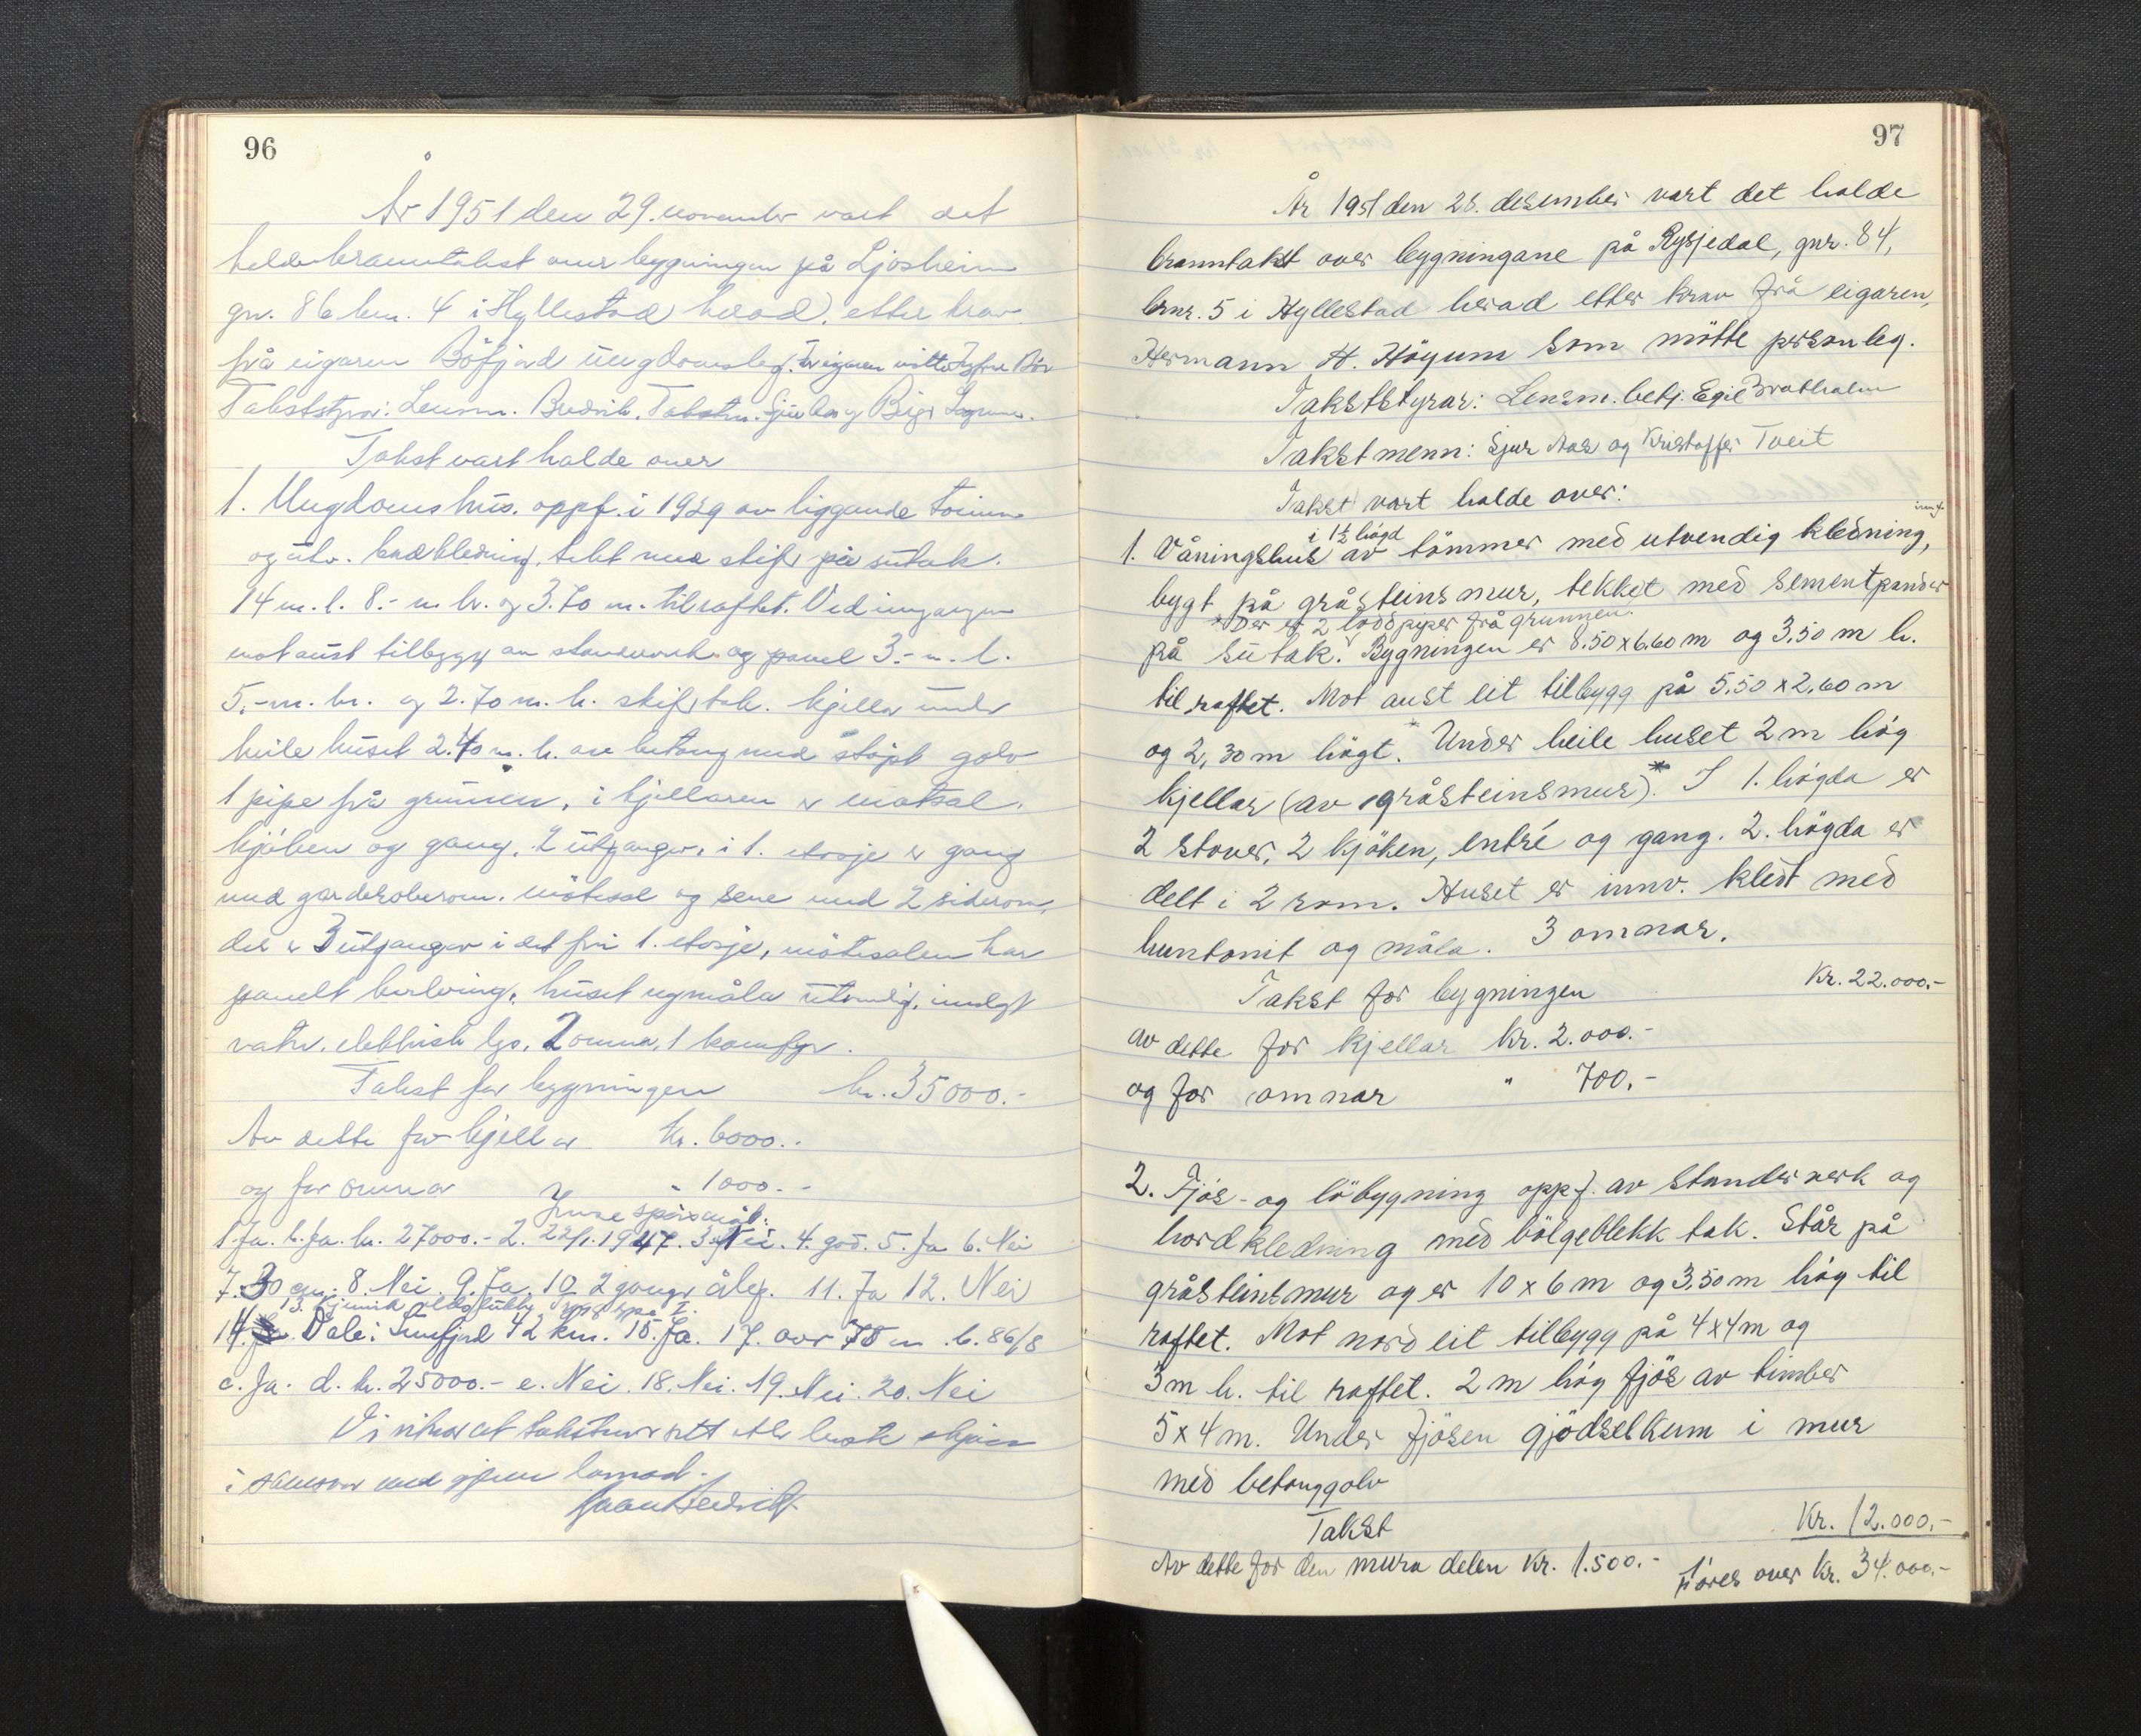 96
År 1951 den 29. november vart det
halde branntakst over bygningen på Ljosheim
gnr. 86 bnr. 4 i Hyllestad herad, etter krav
frå eigaren Böfjord Ungdomslag. For eigaren møtte
Takststyrar: Lensm. Bredvik. Takstm. Sjur Aas og Birger
Takst vart halde over
1. Ungdomshus. oppf. i 1929 av liggande tømmer
og utv. bordkledning, tekt med skifer på sutak.
14 m. l. 8.- m br. og 3.70 m. til raftet. Ved inngangen
mot aust tilbygg av standverk og panel 3.- m. l.
5,- m. br. og 2.70 m. h. skifertak. kjeller under
heile huset 2.40 m. h. av betong med støpt golv
1 pipe frå grunnen, i kjellaren er matsal,
kjöken og gang, 2 utganger. i 1. etasje er gang
med garderoberom. mötesal og sene med 2 siderom,
der er 3 utganger i det fri 1. etasje, mötesalen har
panelt kvelving, huset er måla utvendig, innlagt
vatn. elektrisk lys, 2 omnar, 1 komfyr.
Takst for bygningen kr. 35000.-
Av dette for kjeller kr. 6000.-
og for omnar " 1000.-
Jmfr spörsmål:
1. Ja. b. Ja. kr. 27000.- 2. 22/1. 1947. 3. Nei. 4. god. 5. Ja 6. Nei
7. 30 cm. 8. Nei. 9. Ja. 10. 2 ganger årleg. 11. Ja 12. Nei
13.
14. Dale i Sunnfjord 42 km. 15. Ja. 17. avr 75 m. b. 86/8
c. Ja. d. kr. 25000.- e. Nei. 18. Nei. 19. Nei. 20. Nei
Vi vitnar at taksten er sett etter beste skjön
i samsvar med gjeve lovnad.
97
År 1951 den 28. desember vart det halde
branntakst over bygningane på Rysjedal, gnr. 84,
bnr. 5 i Hyllestad herad etter krav frå eigaren,
Hermann H. Höyum som mötte personleg.
Takststyrar: Lensm. betj. Egil Bratholm
Takstmenn: Sjur Aas og Kristoffer Tveit
Takst vart halde over:
i 1½ högd
1. Våningshus av tömmer med utvendig kledning,
bygt på gråsteinsmur, tekket med sementpanner
* Der er 2 loddpiper frå grunnen.
på sutak. Bygningen er 8.50 x 6.60 m og 3,50 m h.
til raftet. Mot aust eit tilbygg på 5,50 x 2,60 m
og 2,30 m högt. Under heile huset 2 m hög
kjellar (av gråsteinsmur).* I 1. högda er
2 stover, 2 kjöken, entré og gang. 2. högda er
delt i 2 rom. Huset er innv. kledt med
huntonit og måla. 3 omnar.
Takst for bygningen Kr. 22.000,-
av dette for kjellar Kr. 2.000.-
og for omnar " 700,-
2. Fjös- og löbygning oppf. av standerverk og
bordkledning med bölgeblekk tak. Står på
gråsteinsmur og er 10 x 6 m og 3,50 m hög til
raftet. Mot nord eit tilbygg på 4x4 m og
3 m h. til raftet. 2 m hög fjös av timber
5 x 4 m. Under fjösen gjödselkum i mur
med betonggolv
Takst Kr. 12.000,-
Av dette for den mura delen Kr. 1.500.-
Föres over Kr. 34.000,-